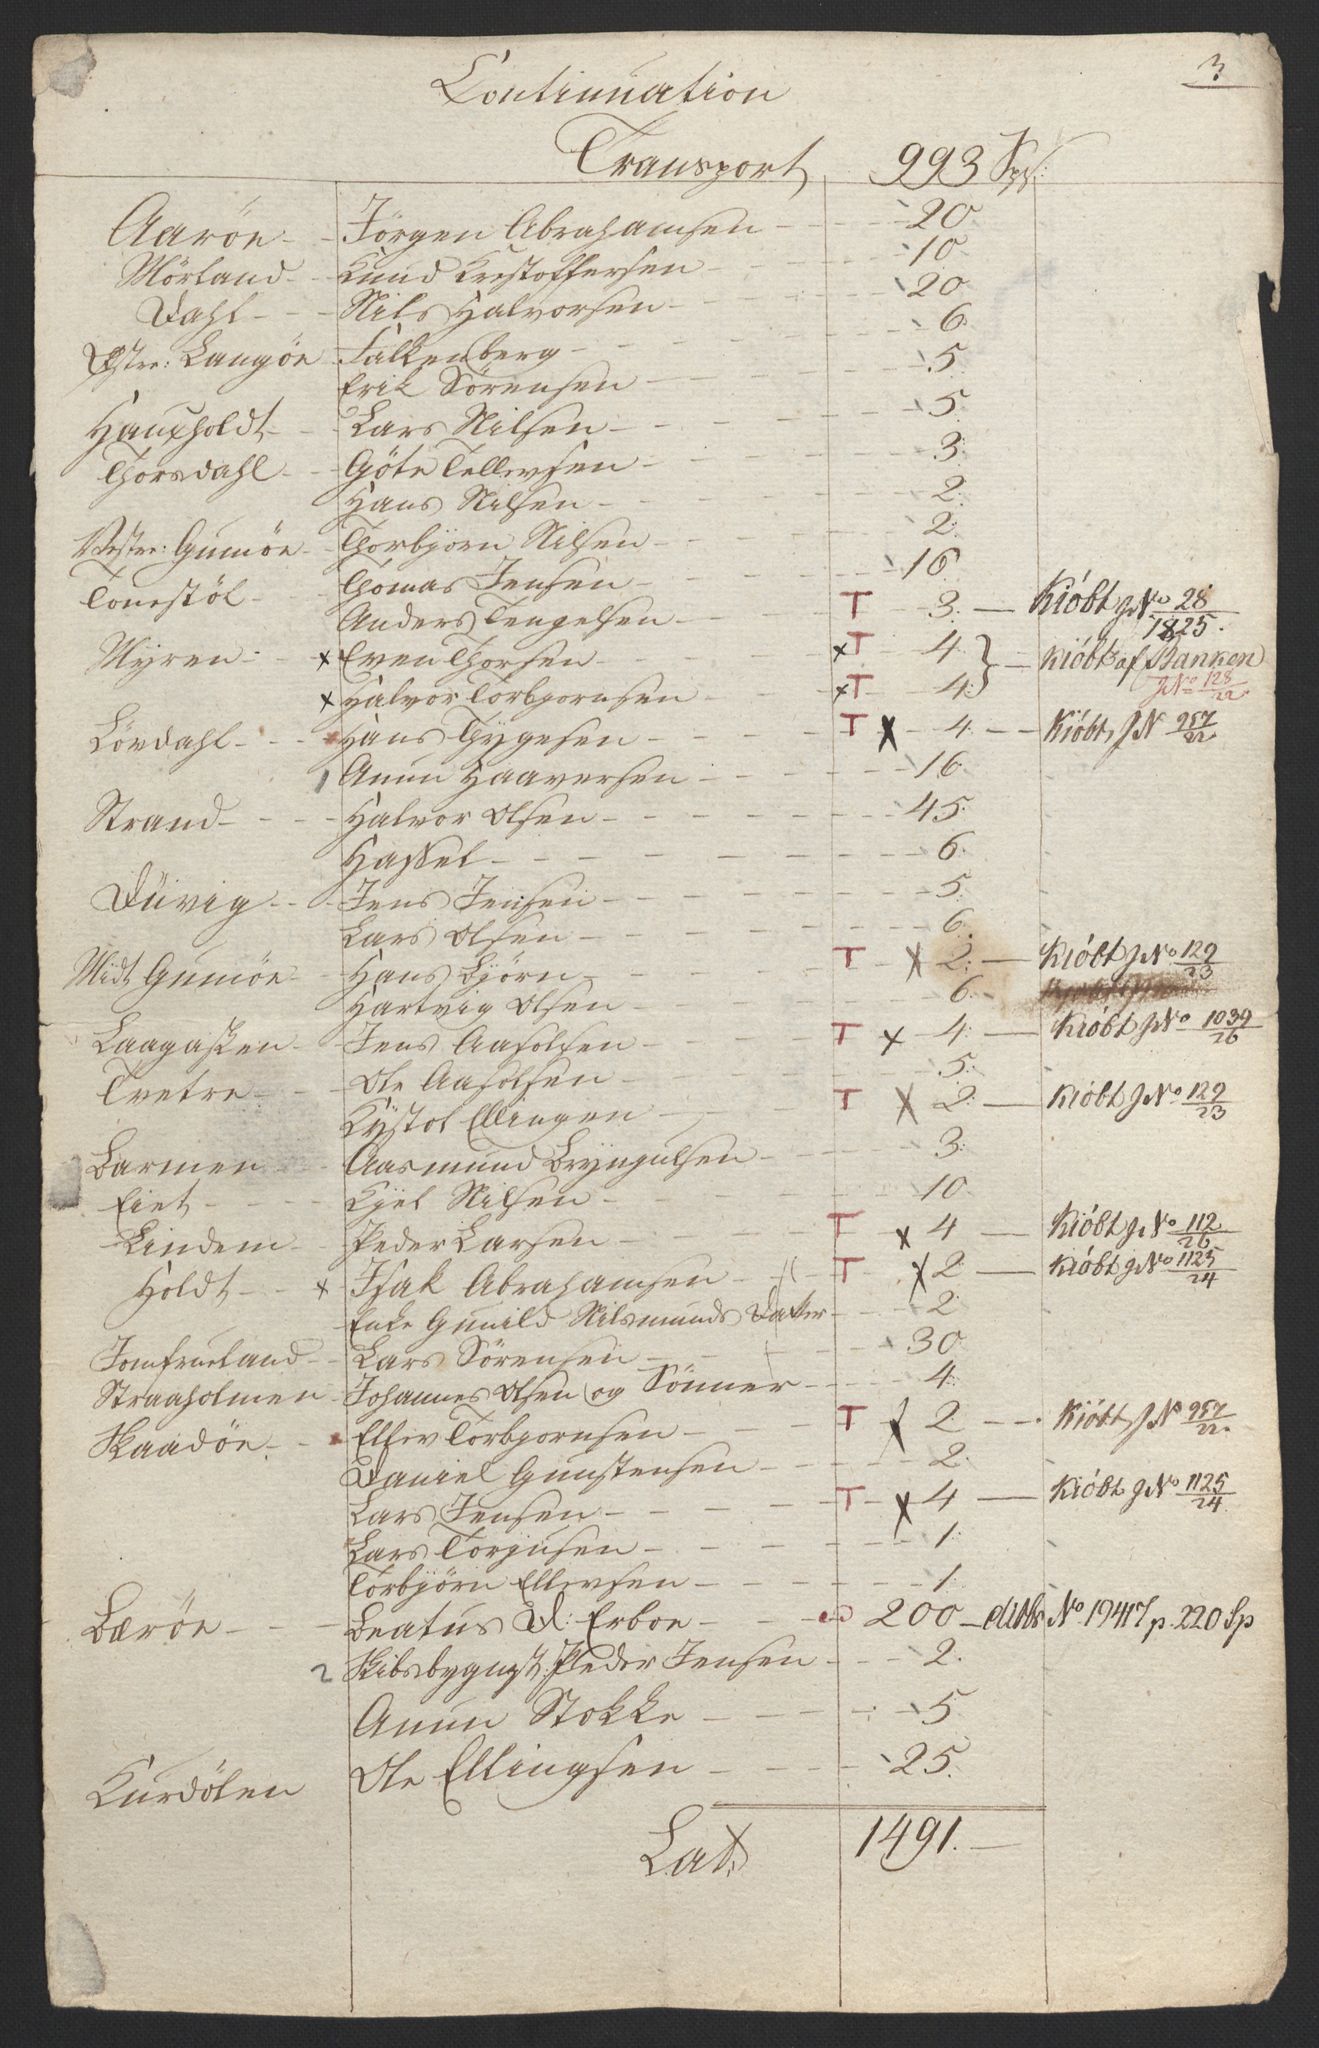 3
Continuation
Transport 993 Sps:
Aaröe - Jörgen Abrahamsen - 20
Mörland - Knud Krestoffersen - 10
Dahl - Nils Halvorsen - 20
Östre: Langöe Falkenberg - 6
Erik Sörensen - 5
Lars Nilsen - 5
Thorsdahl - Göte Tellevsen - 3
Hans Nilsen - 2
Vestre: Gumöe - Thorbjörn Nilsen - 2
Tonestöl - Thomas Jensen - 16
Anders Tengelsen - T 3 - Kiöbt J No 28/1825.
Myren - x Even Thorsen - xT 4 } - Kiöbt af Banken
x Halvor Torbjornsen - xT 4 J No 128/22
Lövdahl - Hans Thygesen - T x 4 - Kiöbt J N 957/22
1 Anun Haaversen - 16
Strand - Halvor Olsen - 45
Hassel - 6
Düvig - Jens Jensen - 5
Lars Olsen - 6
Midt Gumöe - Hans Björn - T x 2 - Kiöbt J No 129/23
Hartvig Olsen - 6
Laagasken - Jens Aasolsen - T x 4 - Kiöbt J No 1039/26
Tvetre - Ole Aasolsen - 5
Kystol Ellingsen - T x 2 - Kiöbt J No 129/23
Barmen - Aasmund Bryngulsen - 3
Eiet - Kjel Nilsen - 10
Lindem - Peder Larsen - T x 4 - Kiöbt J No 112/26
Holdt - x Isak Abrahamsen - T x 2 - Kiöbt J No 1125/24
Enke Gunild Nilsmunds Datter - 2
Jomfrueland - Lars Sörensen - 30
Straaholmen - Johannes Olsen og Sönner - 4
Skaadöe - Ellev Torbjornsen - T x 2 - Kiöbt J N 957/22
Daniel Gunstensen - 2
Lars Jensen - T x 4 - Kiöbt J No 1125/24
Lars Torjusen - 1
Torbjörn Ellevsen - 1
Bæröe - Beatus D: Erboe - 200 - No 19417 p. 220 Sp
2 Skibsbygmst: Peder Jensen - 2
Anun Stokke - 5
Kurdölen Ole Ellingsen - 25
Lat: 1491.